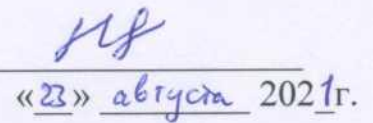 «23» августа 2021г.